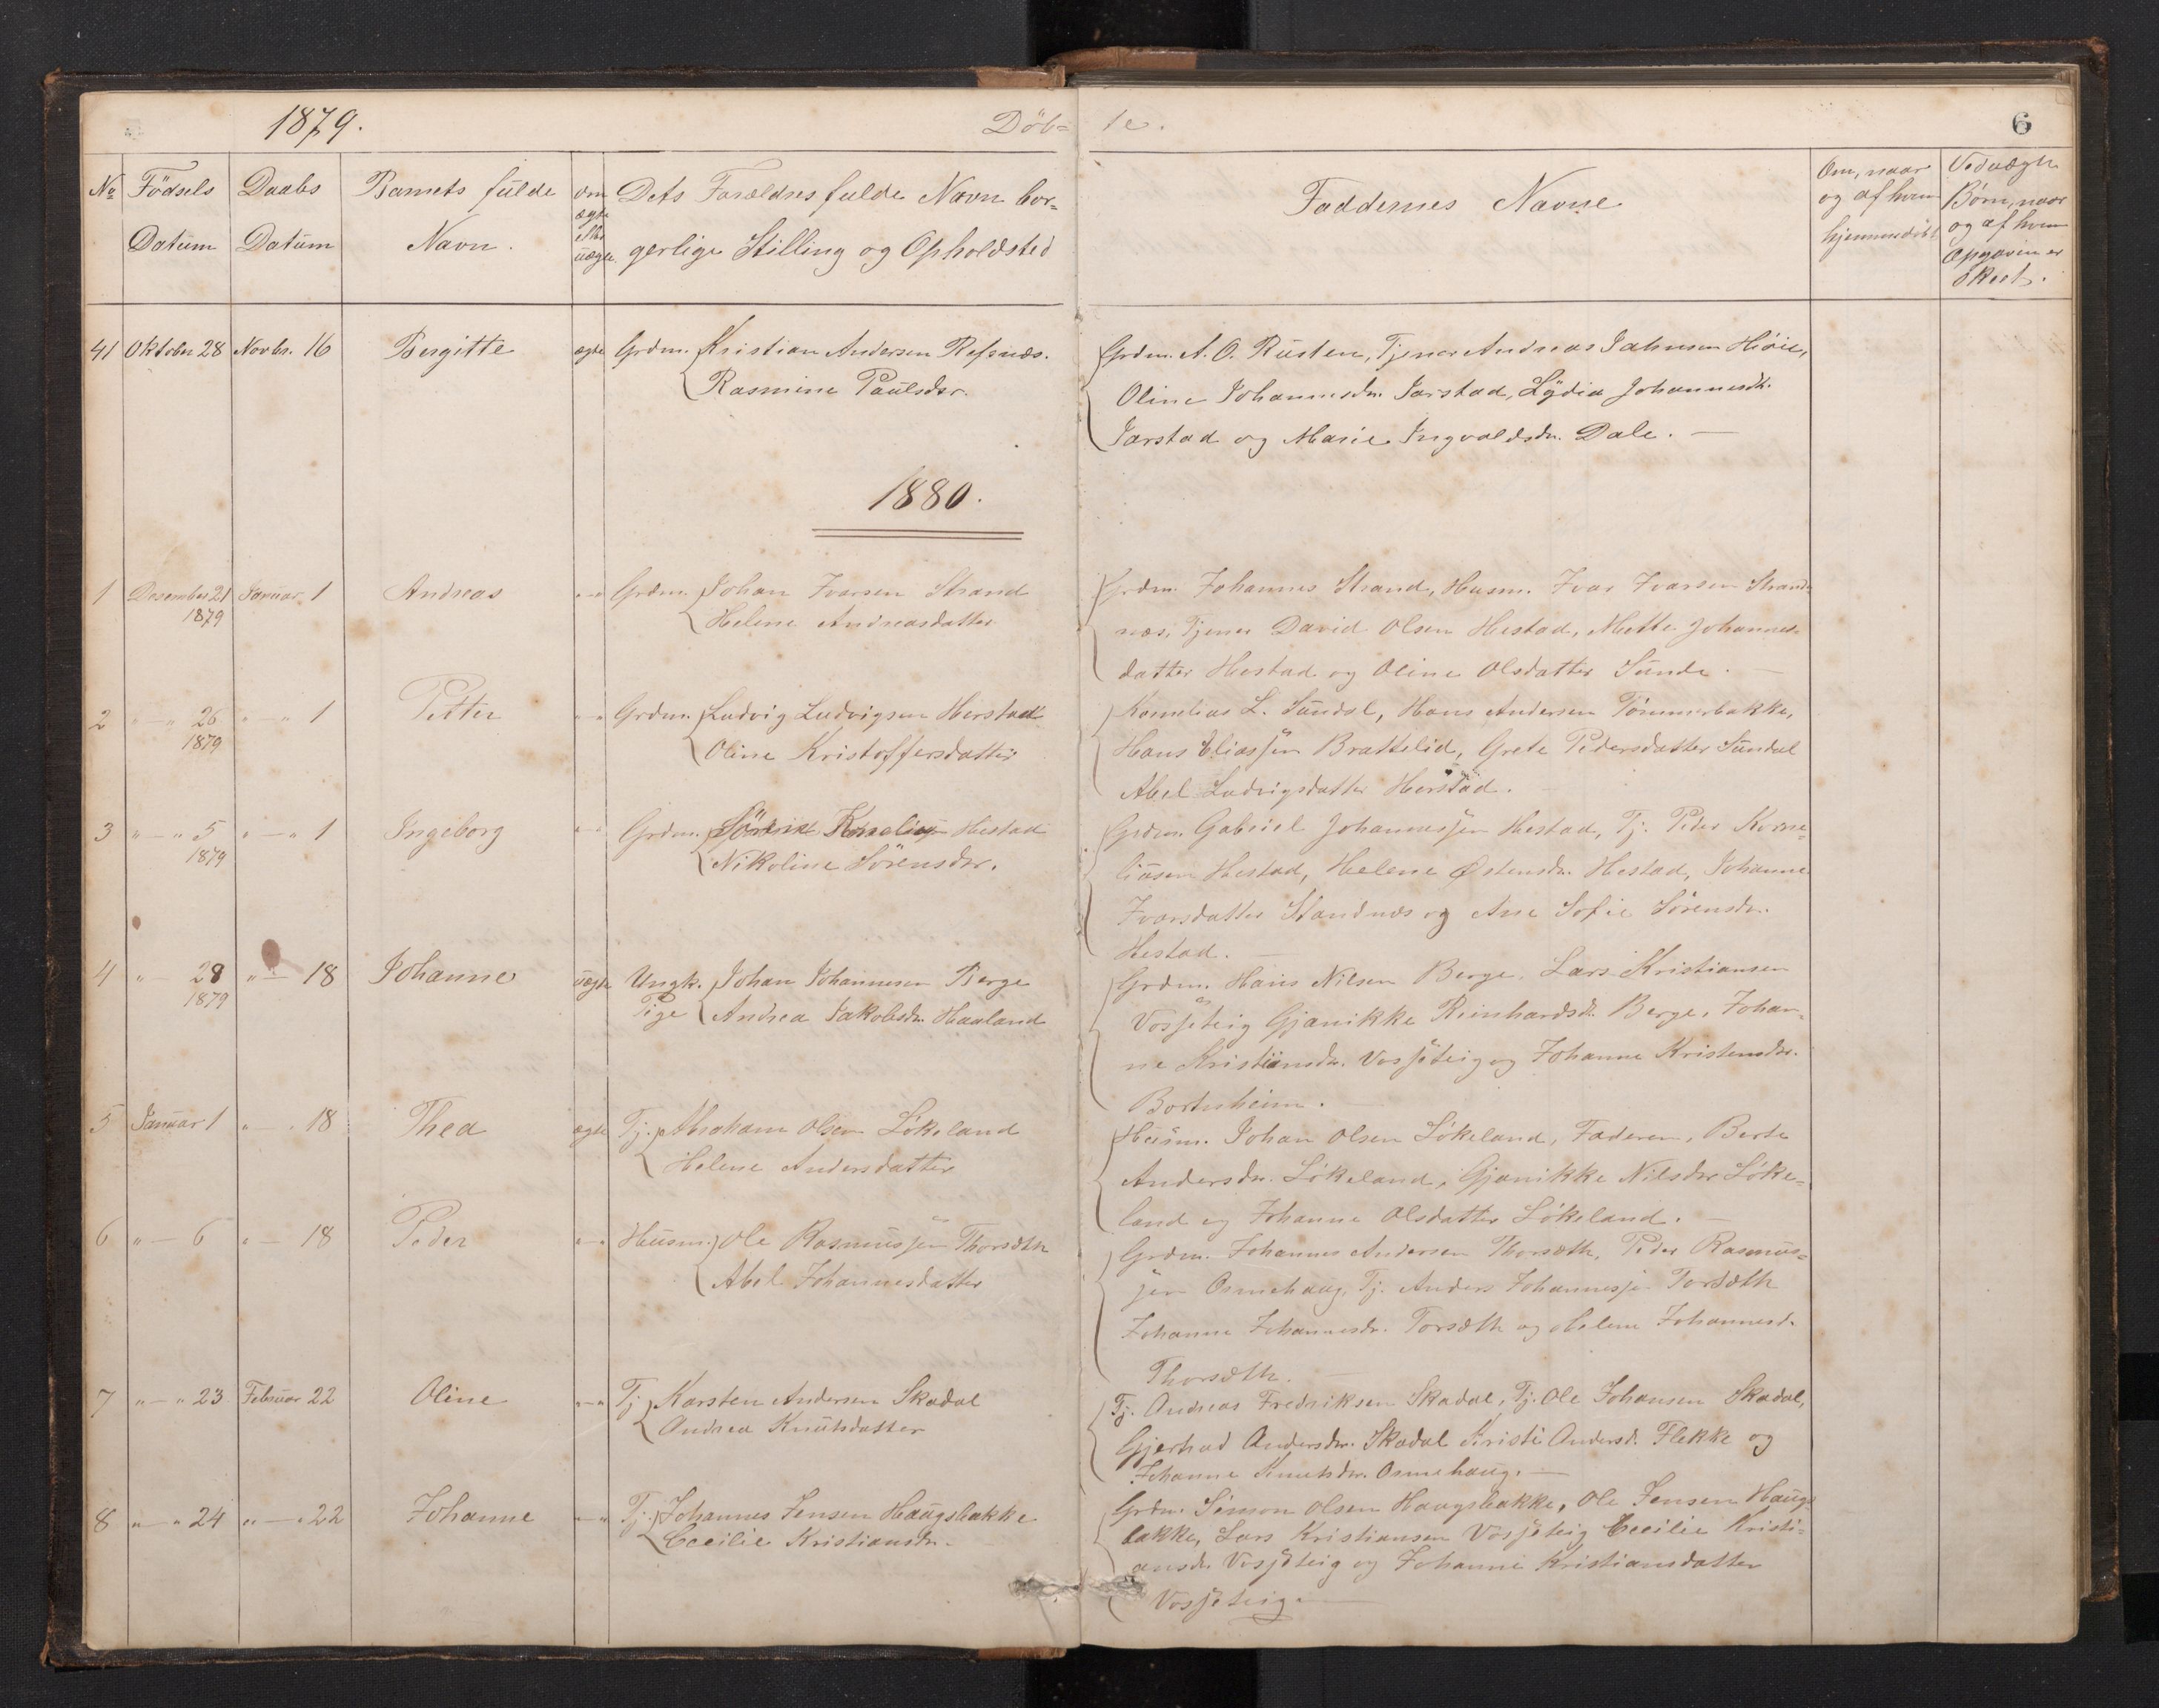 1879.
Döb=
te.
6
No
Födsels Datum
Daabs Datum
Barnets fulde Navn.
om ægte eller uægte
Dets Forældres fulde Navn bor=
gerlige Stilling og Opholdsted
Faddernes Navne
Om, naar og af hvem hjemmedöbt
Ved uægte Börn, naar og af hvem Opgaven er skeet.
41 Oktober 28 Novbr. 16 Bergitte ægte Grdm. Kristian Andersen Refsnæs.
Rasmine Paulsdtr.
Grdm. A. O. Rusten, Tjener Andreas Höie,
Oline Johannesdtr. Jarstad, Lydia Johannesdtr.
Jarstad og Marie Ingvoldsdtr. Dale. —
1880.
1 Desember 21 Januar 1 Andreas " — " Grdm. Johan Ivarsen Strand
1879
Helene Andreasdatter
Grdm. Johannes Strand, Husm. Ivar Ivarsen Strand=
næs, Tjener David Olsen Hestad, Mette Johannes=
datter Hestad og Oline Olsdatter Sunde. —
2 " — " 26 " — " 1 Petter " — " Grdm. Ludvig Ludvigsen Herstad
1879
Oline Kristoffersdatter
Kornelius L. Sundal, Hans Andersen Tömmerbakke,
Hans Eliassen Brattelid, Grete Pedersdatter Sundal
Abel Ludvigsdatter Herstad.
3 " — " 5 " — " 1 Ingeborg " — " Grdm. Kornelius Hestad
1879
Nikoline Sörensdtr.
Grdm. Gabriel Johannessen Hestad, Tj. Peder Korne=
liusen Hestad, Helene Østensdr. Hestad, Johanne
Ivarsdatter Standnæs og Ane Sofie Sörensdr.
Hestad. —
4 " — 28 " — 18 Johanne uægte Ungk. Johan Johannesen Berge
1879
Pige Andrea Jakobsdr. Haaland
Grdm. Hans Nilsen Berge, Lars Kristiansen
Vosseteig Gjanikke Reinhardsdr. Berge, Johan=
ne Kristiansdr. Vosseteig og Johanne Kristensdtr.
Bortnheim. —
5 Januar 1 " — " 18 Thea ægte Tj. Abraham Olsen Lökeland
Helene Andersdatter
Husm. Johan Olsen Lökeland, Faderen, Berte
Andersdr. Lökeland, Gjanikke Nilsdtr Löke=
land og Johanne Olsdatter Lökeland. —
6 " — 6 " — 18 Peder " — " Husm. Ole Rasmussen Thorsæth
Abel Johannesdatter
Grdm. Johannes Andersen Thorsæth, Peder Rasmus=
sen Osmehaug, Tj. Anders Johannessen Torsæth
Johanne Johannesdr. Torsæth og Helene Johannesd.
Thorsæth. —
7 " — " 23 Februar 22 Oline " — " Tj Karsten Andersen Skadal
Andrea Knutsdatter
Tj. Andreas Fredriksen Skadal, Tj. Ole Johansen Skadal,
Gjertrud Andersdr. Skadal Kristi Andersd. Flekke og
Johanne Knutsdr. Osmehaug. —
8 " — " 24 " — " 22 Johanne " — " Tj. Johannes Jensen Haugsbakke
Cecilie Kristiansdr. —
Grdm. Simon Olsen Haugsbakke, Ole Jensen Haugs
bakke, Lars Kristiansen Vosseteig Cecilie Kristi=
ansdr. Vosseteig og Johanne Kristiansdatter
Vosseteig. —